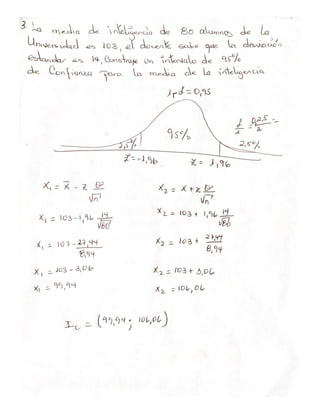 3 La media de inteligencia de 80 alumnos de la
Universidad es 103, el docente sabe que la desviación
estandar es 14, Construye un intervalo de 95%
de Confianza para la media de la inteligencia
1-α = 0,95
95%
2,5%
2,5%
Z = -1,96
Z = 1,96
X₁ = X̄ - Z σ/√n
X₂ = X + Z σ/√n
X₁ = 103 - 1,96 14/√80
X₂ = 103 + 1,96 14/√80
X₁ = 103 - 27,44/8,94
X₂ = 103 + 27,44/8,94
X₁ = 103 - 3,06
X₂ = 103 + 3,06
X₁ = 99,94
X₂ = 106,06
Ic = (99,94 ; 106,06)